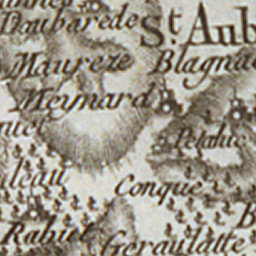 Doubarede
St Aub
Maureze
Blagnac
Meynard
Petahuc
uleau
Conque
B
Rabiet
Geraulatte